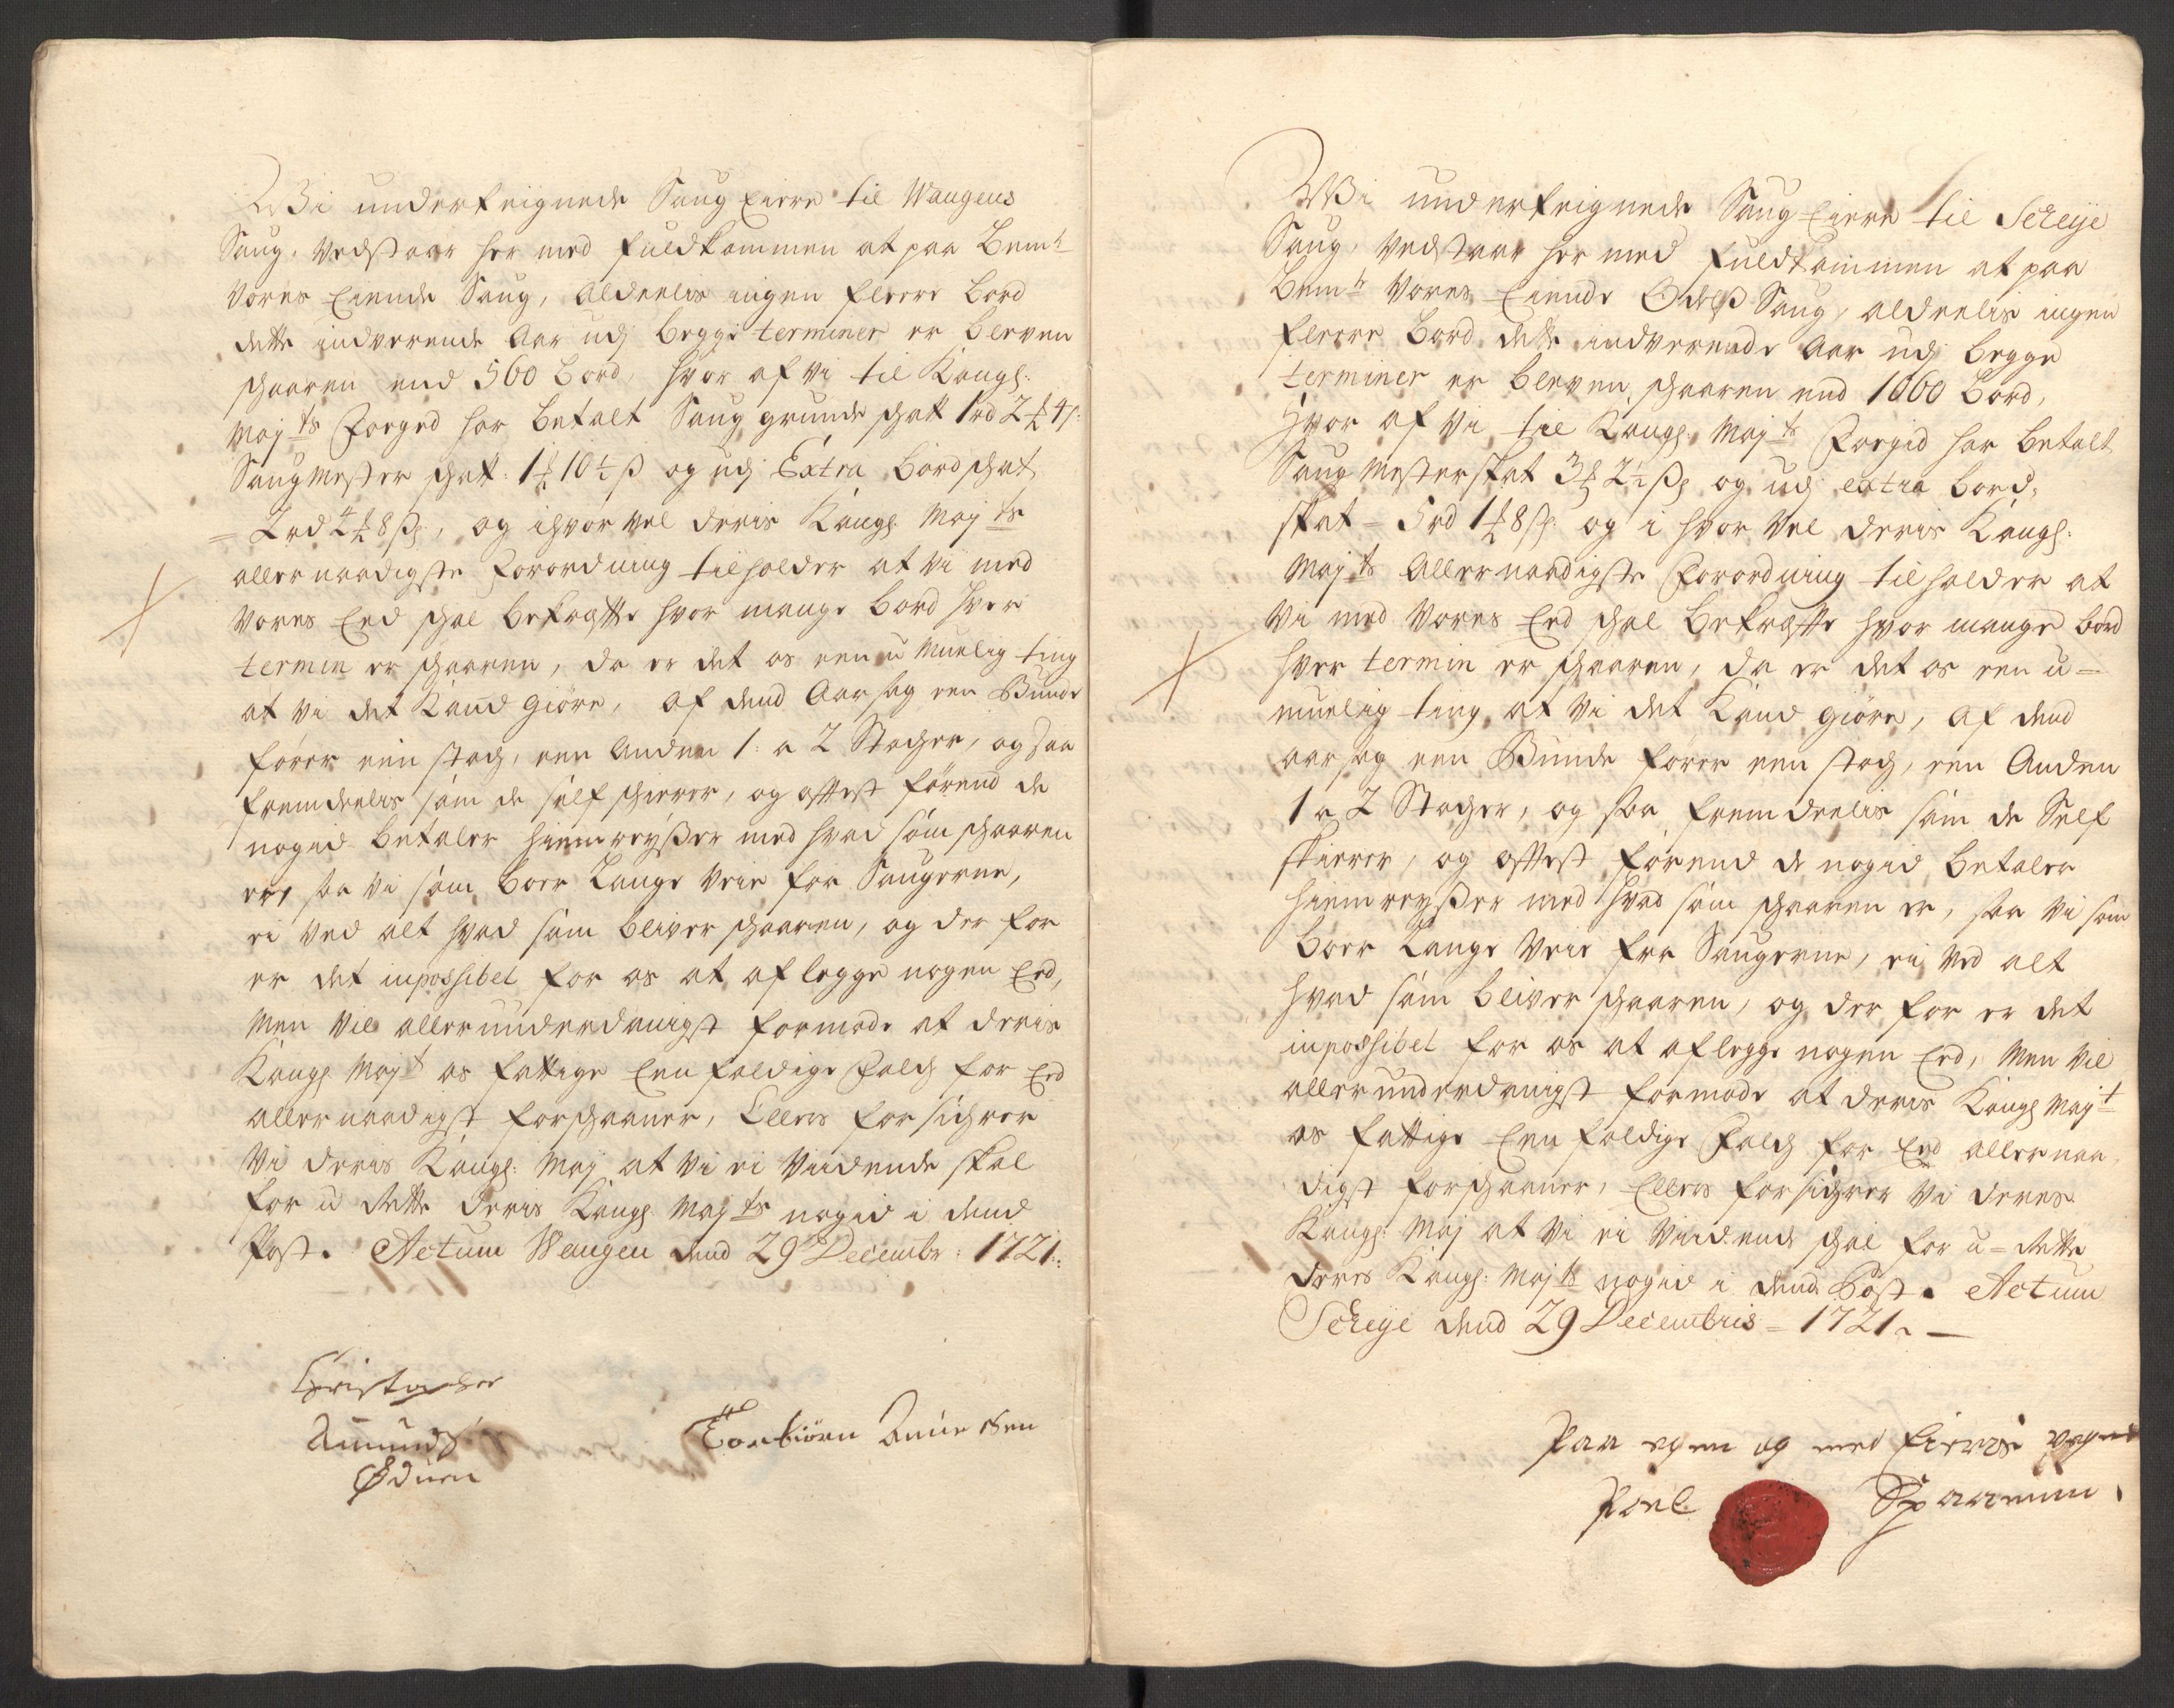 Wi underteignede Saug Eiere til Waagens
Saug, vedstaar her med fuldkommen at paa Bem:te
vores Eiende Saug, aldeelis ingen fleere bord
dette indverende Aar udj begge terminer er bleven
schaaren end 560 Bord, hvor af vi til Kongl:
Maj:ts Foeged har betalt Saug grunde schatt 1rd 2 4s:
Saugmester schatt: 1 10½ s og udj Extra bord schat
= 2rd 2 8 s, og ihvor vel deris Kongl: Maj:ts
allernaadigste Forordning tilholder at vi med
vores Eed schal bekrefte hvor mange bord hver
termin er schaaren, da er det os een u muelig ting
at vi det kand giøre, af dend Aarsag een Bunde
fører een stoch, een Anden 1: a 2 Stocher, og saa
fremdeelis som de self schierer, og oftest førend de
nogid betaler hiemreyser med hvad som schaaren
er, saa vi som boer Lange veie fra Saugerne,
ei ved alt hvad som bliver schaaren, og der for
er det inpossibel for os at aflegge nogen Eed,
Men vil allerunderdanigst formode at deris
Kongl: Maj:t os fattige Eenfoldige Folch for Eed
allernaadigst forschaaner, Ellers forsichrer
Vi deris Kongl: Maj at vi ei vidende skal
for u rette deris Kongl: Maj:ts nogid i dend
Post. Actum Waugen dend 29 Decembr: 1721:
Christopher
Amunds
Øduen
Torbiørn Amundsen
Wi underteignede Saug Eiere til Screije
Saug, vedstaar her med fuldkommen at paa
Bem:te vores Eiende Odels Saug, aldeelis ingen
fleere Bord dette indverende Aar udj begge
terminer er bleven schaaren end 1060 Bord,
Hvor af vi til Kongl: Maj:ts Foegid har betalt
Saug Mester skat 3 2½ s og udj extra bord,
skat = 5rd 1 8 s og i hvor vel deris Kongl:
Maj:ts Allernaadigste Forordning tilholder at
vi med vores Eed schal bekrefte hvor mange bord
hver termin er schaaren, da er det os een u=
muelig ting at vi det kand giøre, af dend
aarsag een Bunde fører een stoch, een Anden
1 a 2 Stocher, og saa fremdeelis som de Self
skierer, og oftest førend de nogid betaler
hiemreyser med hvad som schaaren er, saa vi som
boer Lange veie fra Saugerne, ei ved alt
hvad som bliver schaaren, og der for er det
inpossibel for os at aflegge nogen Eed, Men vil
allerunderdanigst formode at deris Kongl: Maj:t
os fattige Eenfoldige Folch for Eed allernaa-
digst forschaaner, Ellers forsichrer Vi deres
Kongl: Maj at vi ei vidende schal for u=rette
deres Kongl: Maj:ts nogid i dend Post. Actum
Screije dend 29 Decembris = 1721.
Paa egen og med Eieris vegne
Poel Spaanum